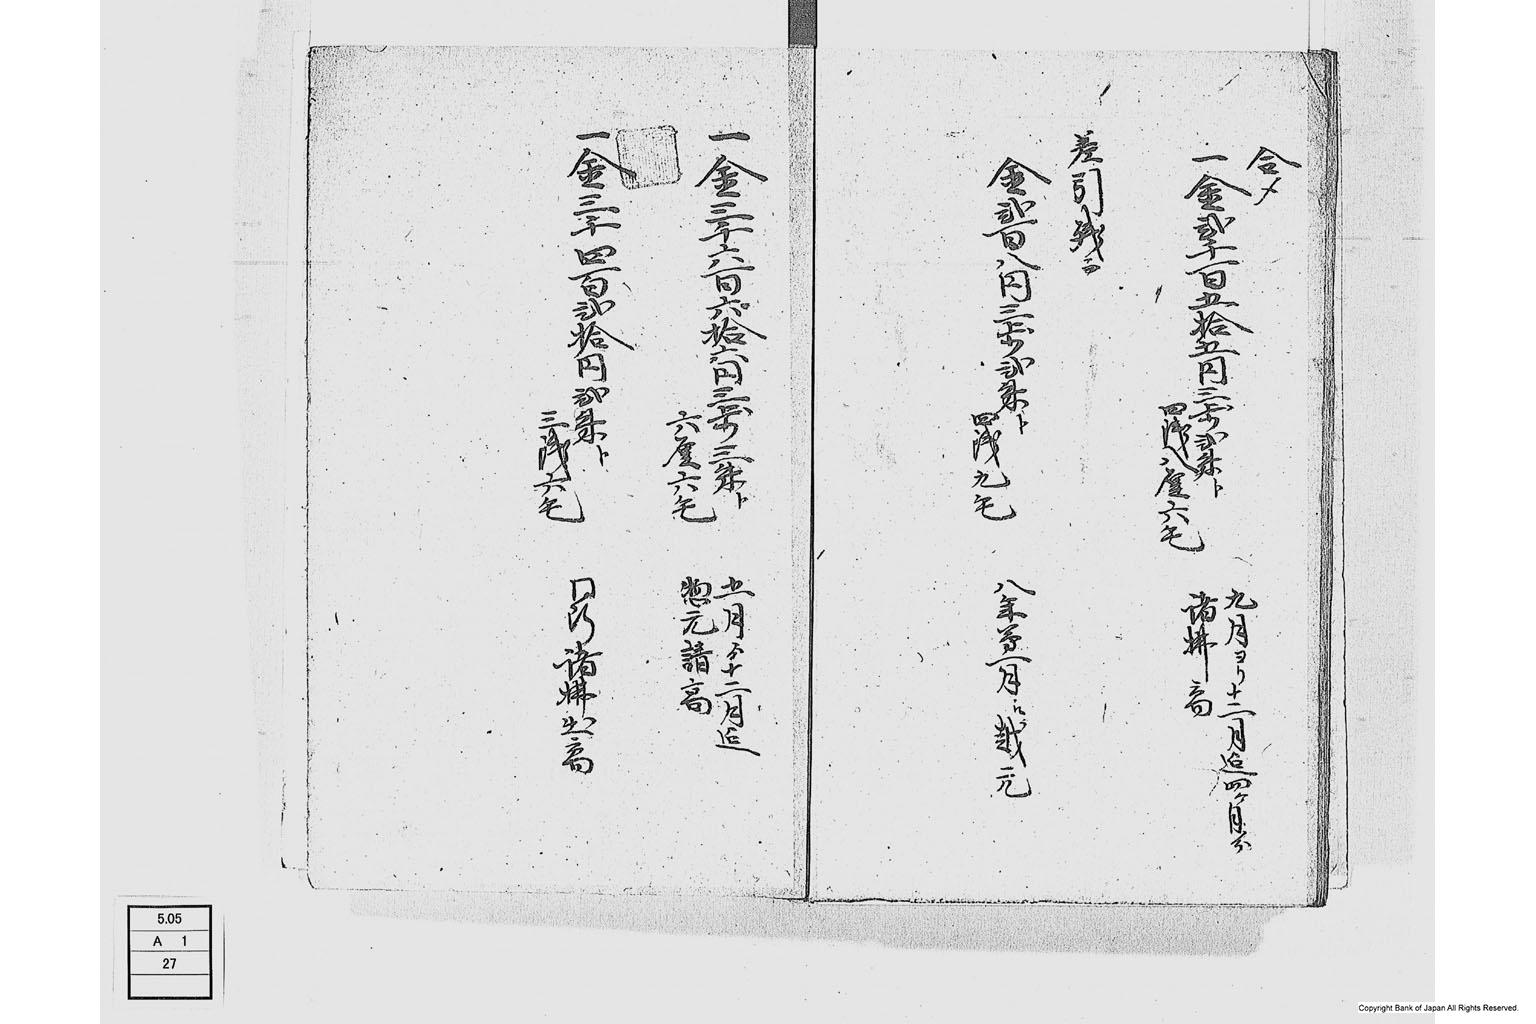 合〆
一金弐千一百五拾五円三歩弐朱ト
四銭八厘六毛
九月ヨリ十二月迄四ケ月分
諸払高
差引残而
金弐百八円三歩弐朱ト
四銭九毛
八年第一月江越元
一金三千六百六拾六円三歩三朱ト
六厘六毛
五月ヨリ十二月迄
惣元請高
一金三千四百弐拾円弐朱ト
三銭六毛
口々諸払出高
5.05
A 1
27
Copyright Bank of Japan All Rights Reserved.